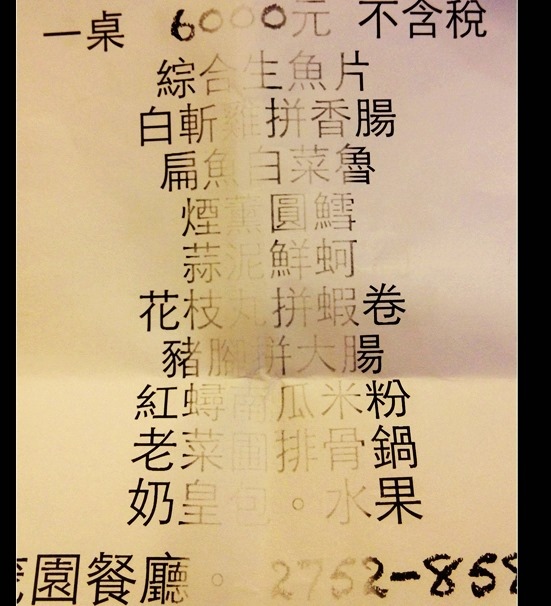 一桌 6000元 不含稅
綜合生魚片
白斬雞拼香腸
扁魚白菜魯
煙薰圓鱈
蒜泥鮮蚵
花枝丸拼蝦卷
豬腳拼大腸
紅蟳南瓜米粉
老菜圃排骨鍋
奶皇包。水果
園餐廳。2752-858